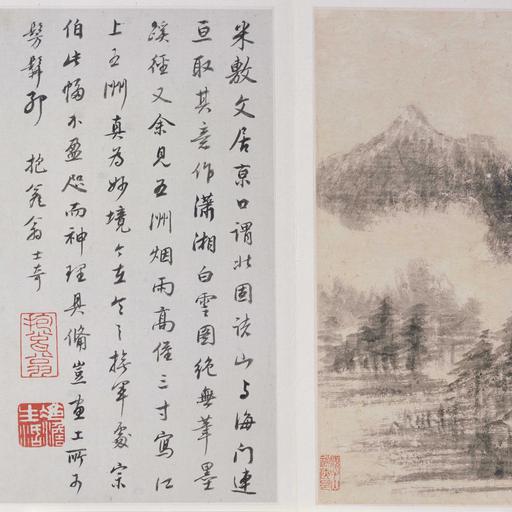 米敷文居京口謂北固諸山与海门連
亘取其意作瀟湘白雲圖絶無筆墨
蹊徑又余見五洲烟雨高僅三寸寫江
上五洲真為妙境今在 軍處宗
伯此幅不盈咫而神理具備豈畫工所可
髣髴耶 抱甕翁士奇
抱甕翁